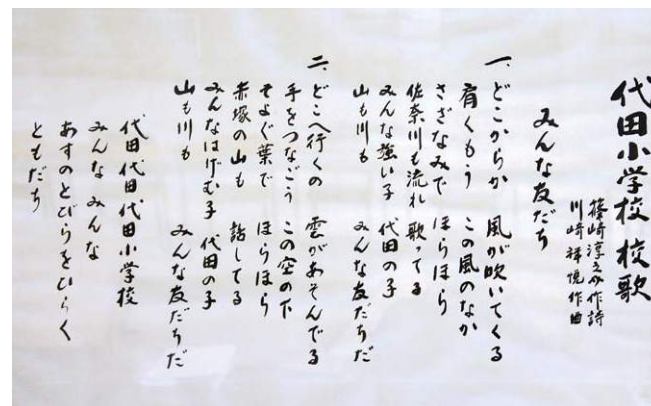 代田小学校 校歌
篠崎淳之介作詩
川崎祥悦作曲
みんな友だち
一、どこからか 風が吹いてくる
肩くもう この風のなか
さざなみで ほらほら
佐奈川も流れ 歌ってる
みんな強い子 代田の子
山も川も みんな友だちだ
二、どこへ行くの 雲があそんでる
手をつなごう この空の下
そよぐ葉で ほらほら
赤塚の山も 話してる
みんなはげむ子 代田の子
山も川も みんな友だちだ
代田代田代田小学校
みんな みんな
あすのとびらをひらく
ともだち